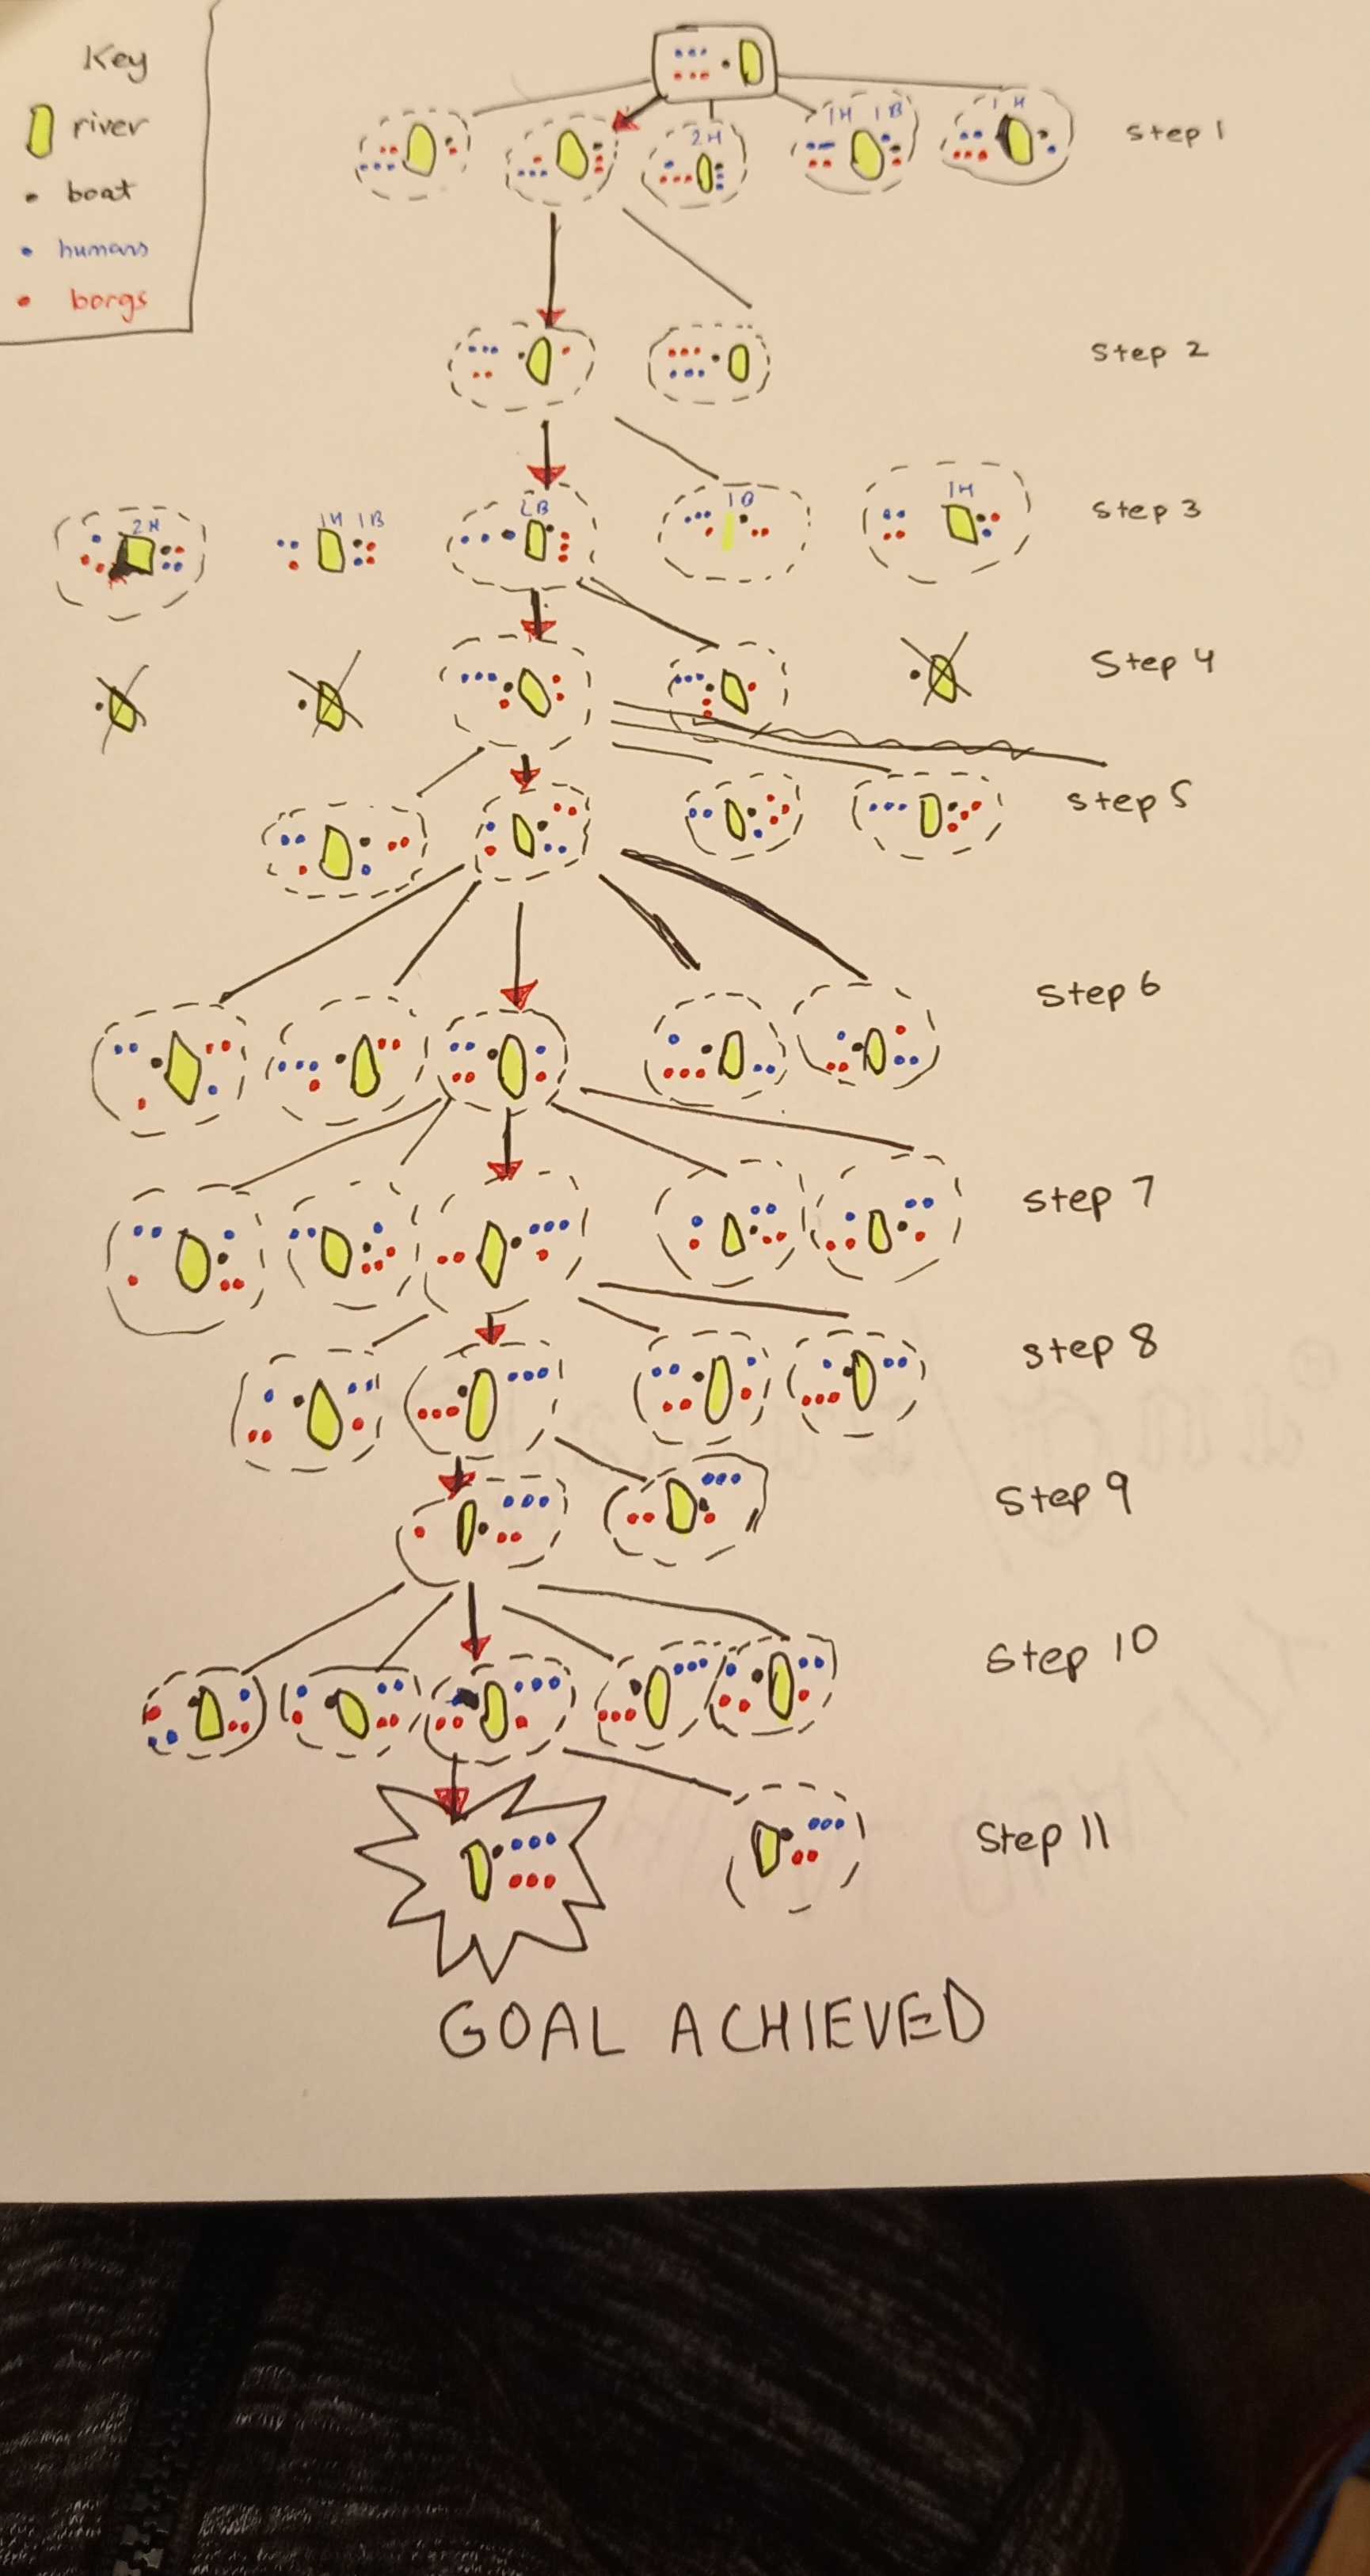 Key
river
boat
humans
borgs
2H
1H 1B
1 H
Step 1
Step 2
2H
1H 1B
2B
1B
1H
Step 3
Step 4
Step 5
Step 6
Step 7
Step 8
Step 9
Step 10
Step 11
GOAL ACHIEVED